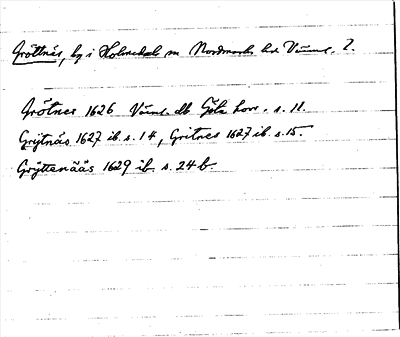 Gröttnäs, by i Holmedal sn Nordmarks hd Värml. l.
Grötnes 1626 Värml. db Göta hovr. s. 11.
Grytnäs 1627 ib. s. 14, Gritnes 1627 ib. s. 15.
Gryttenääs 1629 ib. s. 24 b.